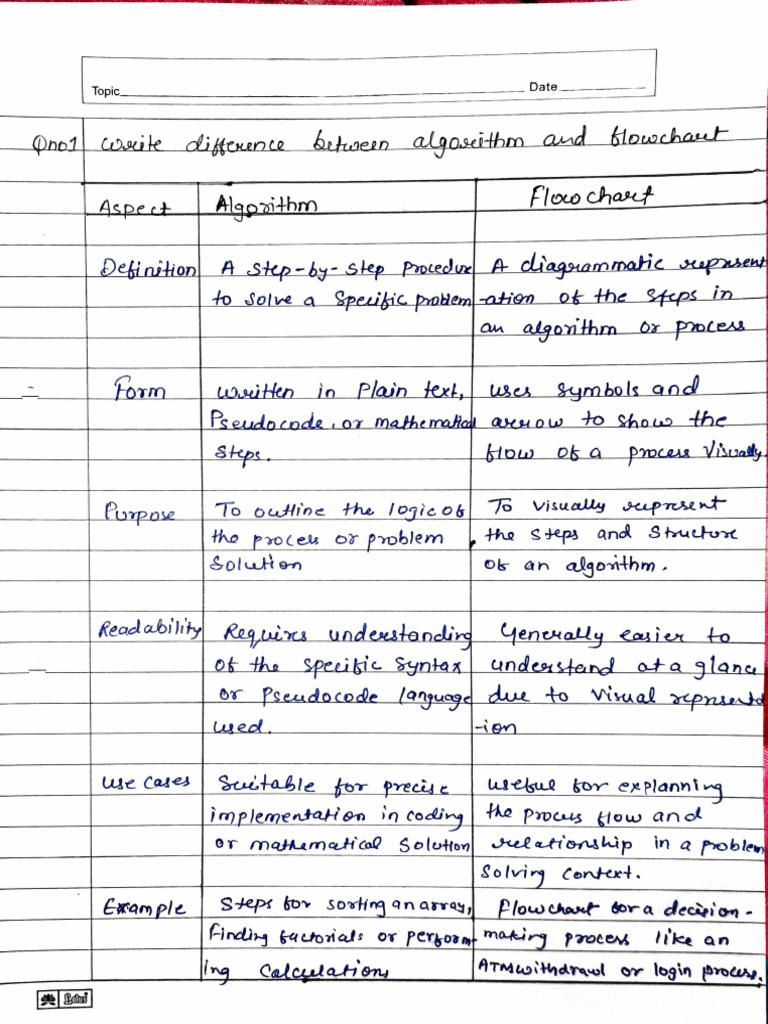 Topic Date
Qno1 Write difference between algorithm and flowchart
Aspect Algorithm Flowchart
Definition A step-by-step procedure A diagrammatic represent
to solve a specific problem -ation of the steps in
an algorithm or process
Form written in plain text, uses symbols and
Pseudocode, or mathematical arrow to show the
steps. flow of a process visually
Purpose To outline the logic of To visually represent
the process or problem the steps and structure
solution of an algorithm.
Readability Requires understanding Generally easier to
of the specific syntax understand at a glance
or pseudocode language due to visual representa
used. -ion
use cases Suitable for precise useful for explanning
implementation in coding the process flow and
or mathematical solution relationship in a problem
solving context.
Example Steps for sorting an array, Flowchart for a decision-
finding factorials or perform- making process like an
ing calculations ATM withdrawl or login process.
Lotus